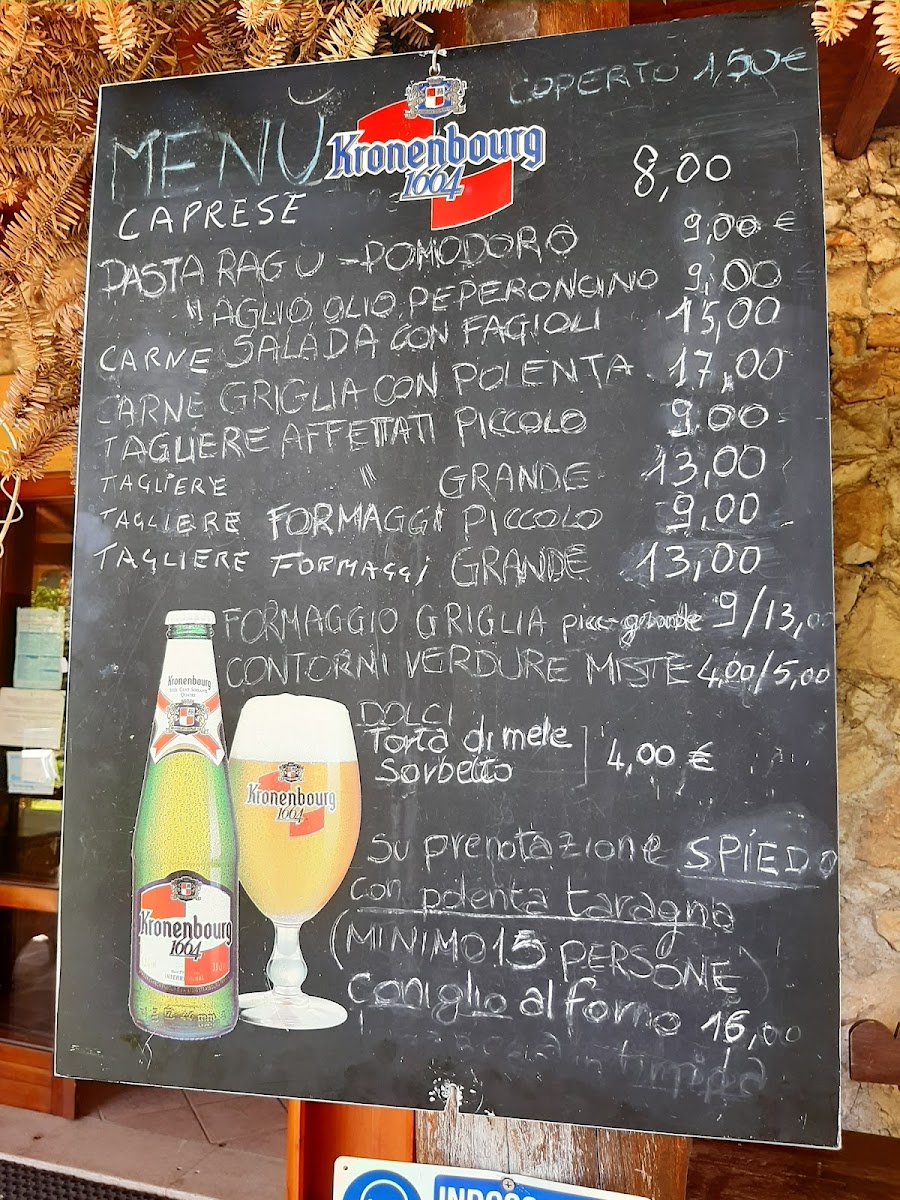 COPERTO 1,50€
MENÙ
Kronenbourg
1664
CAPRESE 8,00
PASTA RAGU - POMODORO 9,00 €
" AGLIO OLIO PEPERONCINO 9,00
CARNE SALADA CON FAGIOLI 15,00
CARNE GRIGLIA CON POLENTA 17,00
TAGLIERE AFFETTATI PICCOLO 9.00
TAGLIERE " GRANDE 13,00
TAGLIERE FORMAGGI PICCOLO 9,00
TAGLIERE FORMAGGI GRANDE 13,00
FORMAGGIO GRIGLIA picc-grande 9/13,0
CONTORNI VERDURE MISTE 4,00/5,00
DOLCI
Torta di mele
Sorbetto
4,00 €
su prenotazione SPIEDO
con polenta taragna
(MINIMO 15 PERSONE)
Coniglio al forno 16,00
in
Kronenbourg
Kronenbourg
1664
Kronenbourg
1664